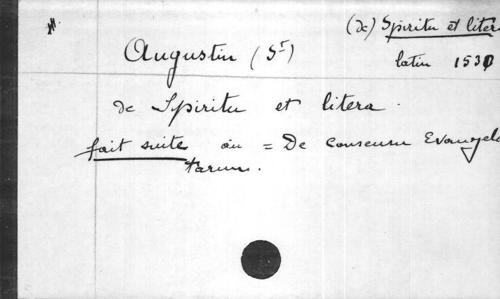 M.
(de) Spiritu et litera
latin 1530
Augustin (St)
de Spiritu et litera.
fait suite au = De consensu Evangelis
tarum.